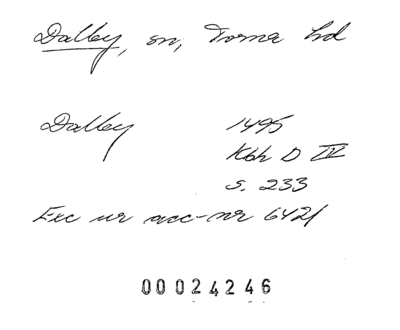 Dalby, sn, Torna hd
Dalby 1495
Kbh D IV
s. 233
Exc ur acc-nr 6421
00024246